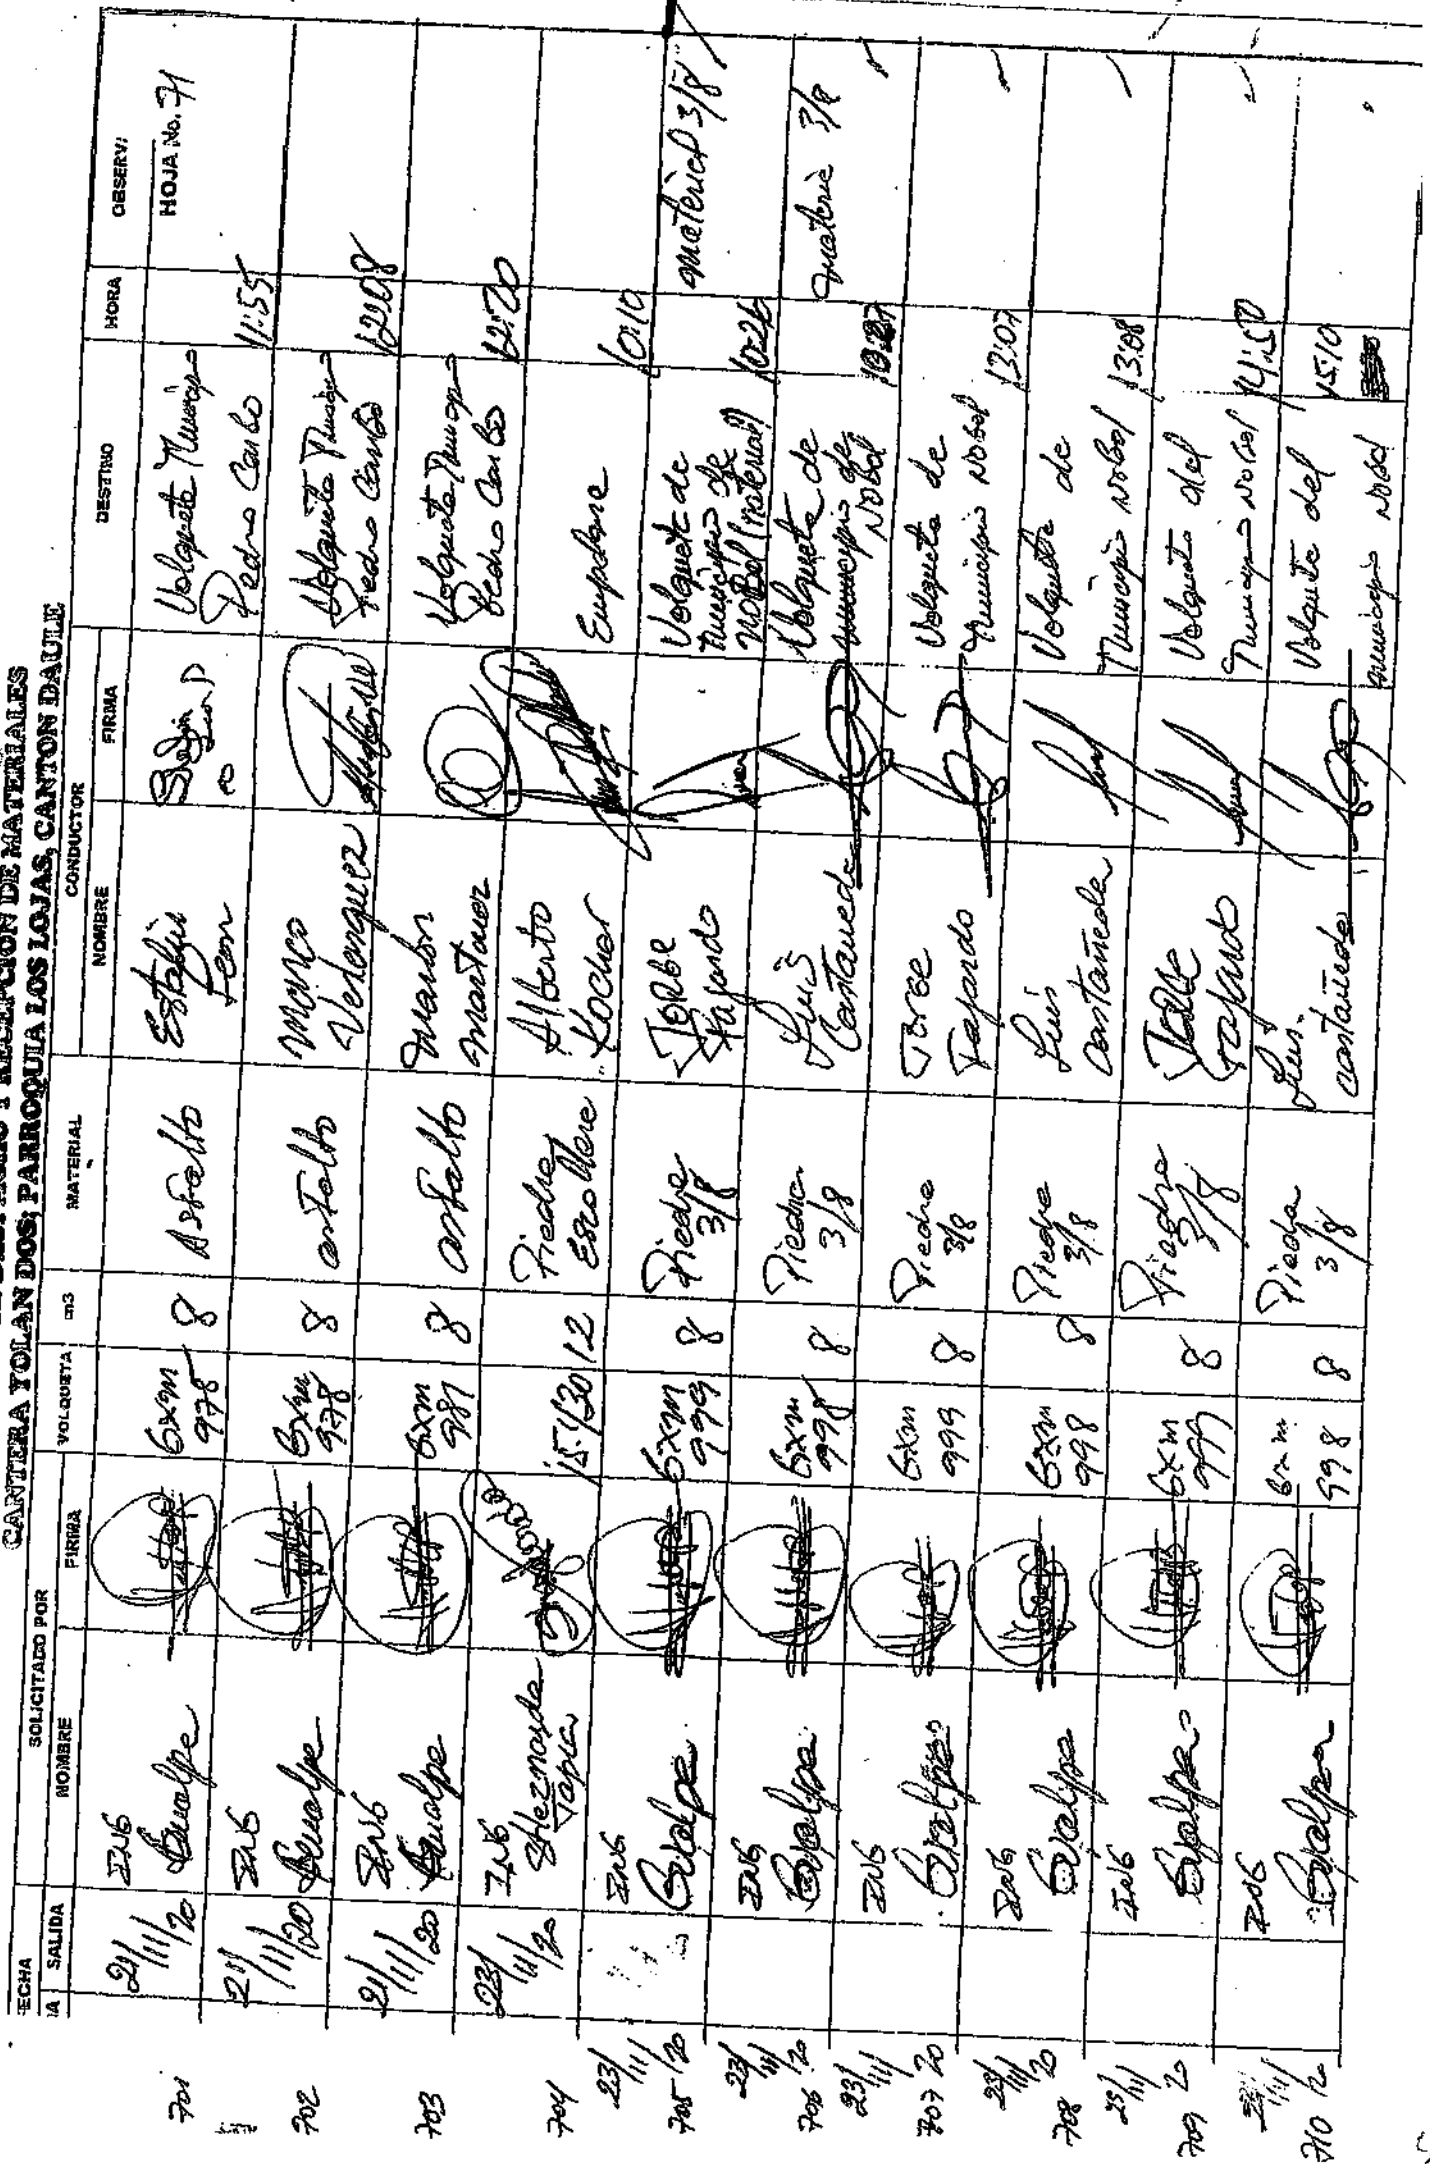 DESPACHO Y RECEPCION DE MATERIALES
CANTERA YOLAN DOS; PARROQUIA LOS LOJAS, CANTON DAULE
ECHA SOLICITADO POR VOLQUETA cm3 MATERIAL CONDUCTOR DESTINO HORA OBSERV:
IA SALIDA NOMBRE FIRMA NOMBRE FIRMA
HOJA No. 71
701 21/11/20 ING Gualpe 6xm 975 8 Asfalto Estalin Leon Volqueta Municipio Pedro Carbo 11:55
702 21/11/20 ING Gualpe 6xm 978 8 asfalto Marco Velasquez Volqueta Municipio Pedro Carbo 12:08
703 21/11/20 ING Gualpe 6xm 981 8 asfalto Marlon Martinez Volqueta Municipio Pedro Carbo 12:20
704 23/11/20 ING Sheznarda Tapia 15-1/30 12 Piedra Escollera Alberto Kocher Empdare 10:10
705 23/11/20 ING Gualpe 6xm 999 8 Piedra 3/8 Jorge Fajardo Volqueta de Municipio de Nobol (material) 10:26 material 3/8
706 23/11/20 ING Gualpa 6xm 998 8 Piedra 3/8 Luis Castañeda Volqueta de municipio de Nobol 10:27 materia 3/8
707 23/11/20 ING Gualpa 6xm 999 8 Piedra 3/8 Jorge Fajardo Volqueta de Municipio Nobol 13:07
708 23/11/20 ING Gualpa 6xm 998 8 Piedra 3/8 Luis Castañeda Volqueta de Municipio Nobol 13:08
709 23/11/20 ING Gualpa 6xm 999 8 Piedra 3/8 Jorge Fajardo Volqueta del Municipio Nobol 14:50
710 /11/20 ING Gualpa 6xm 998 8 Piedra 3/8 Luis castañeda Volqueta del municipio Nobol 15:10